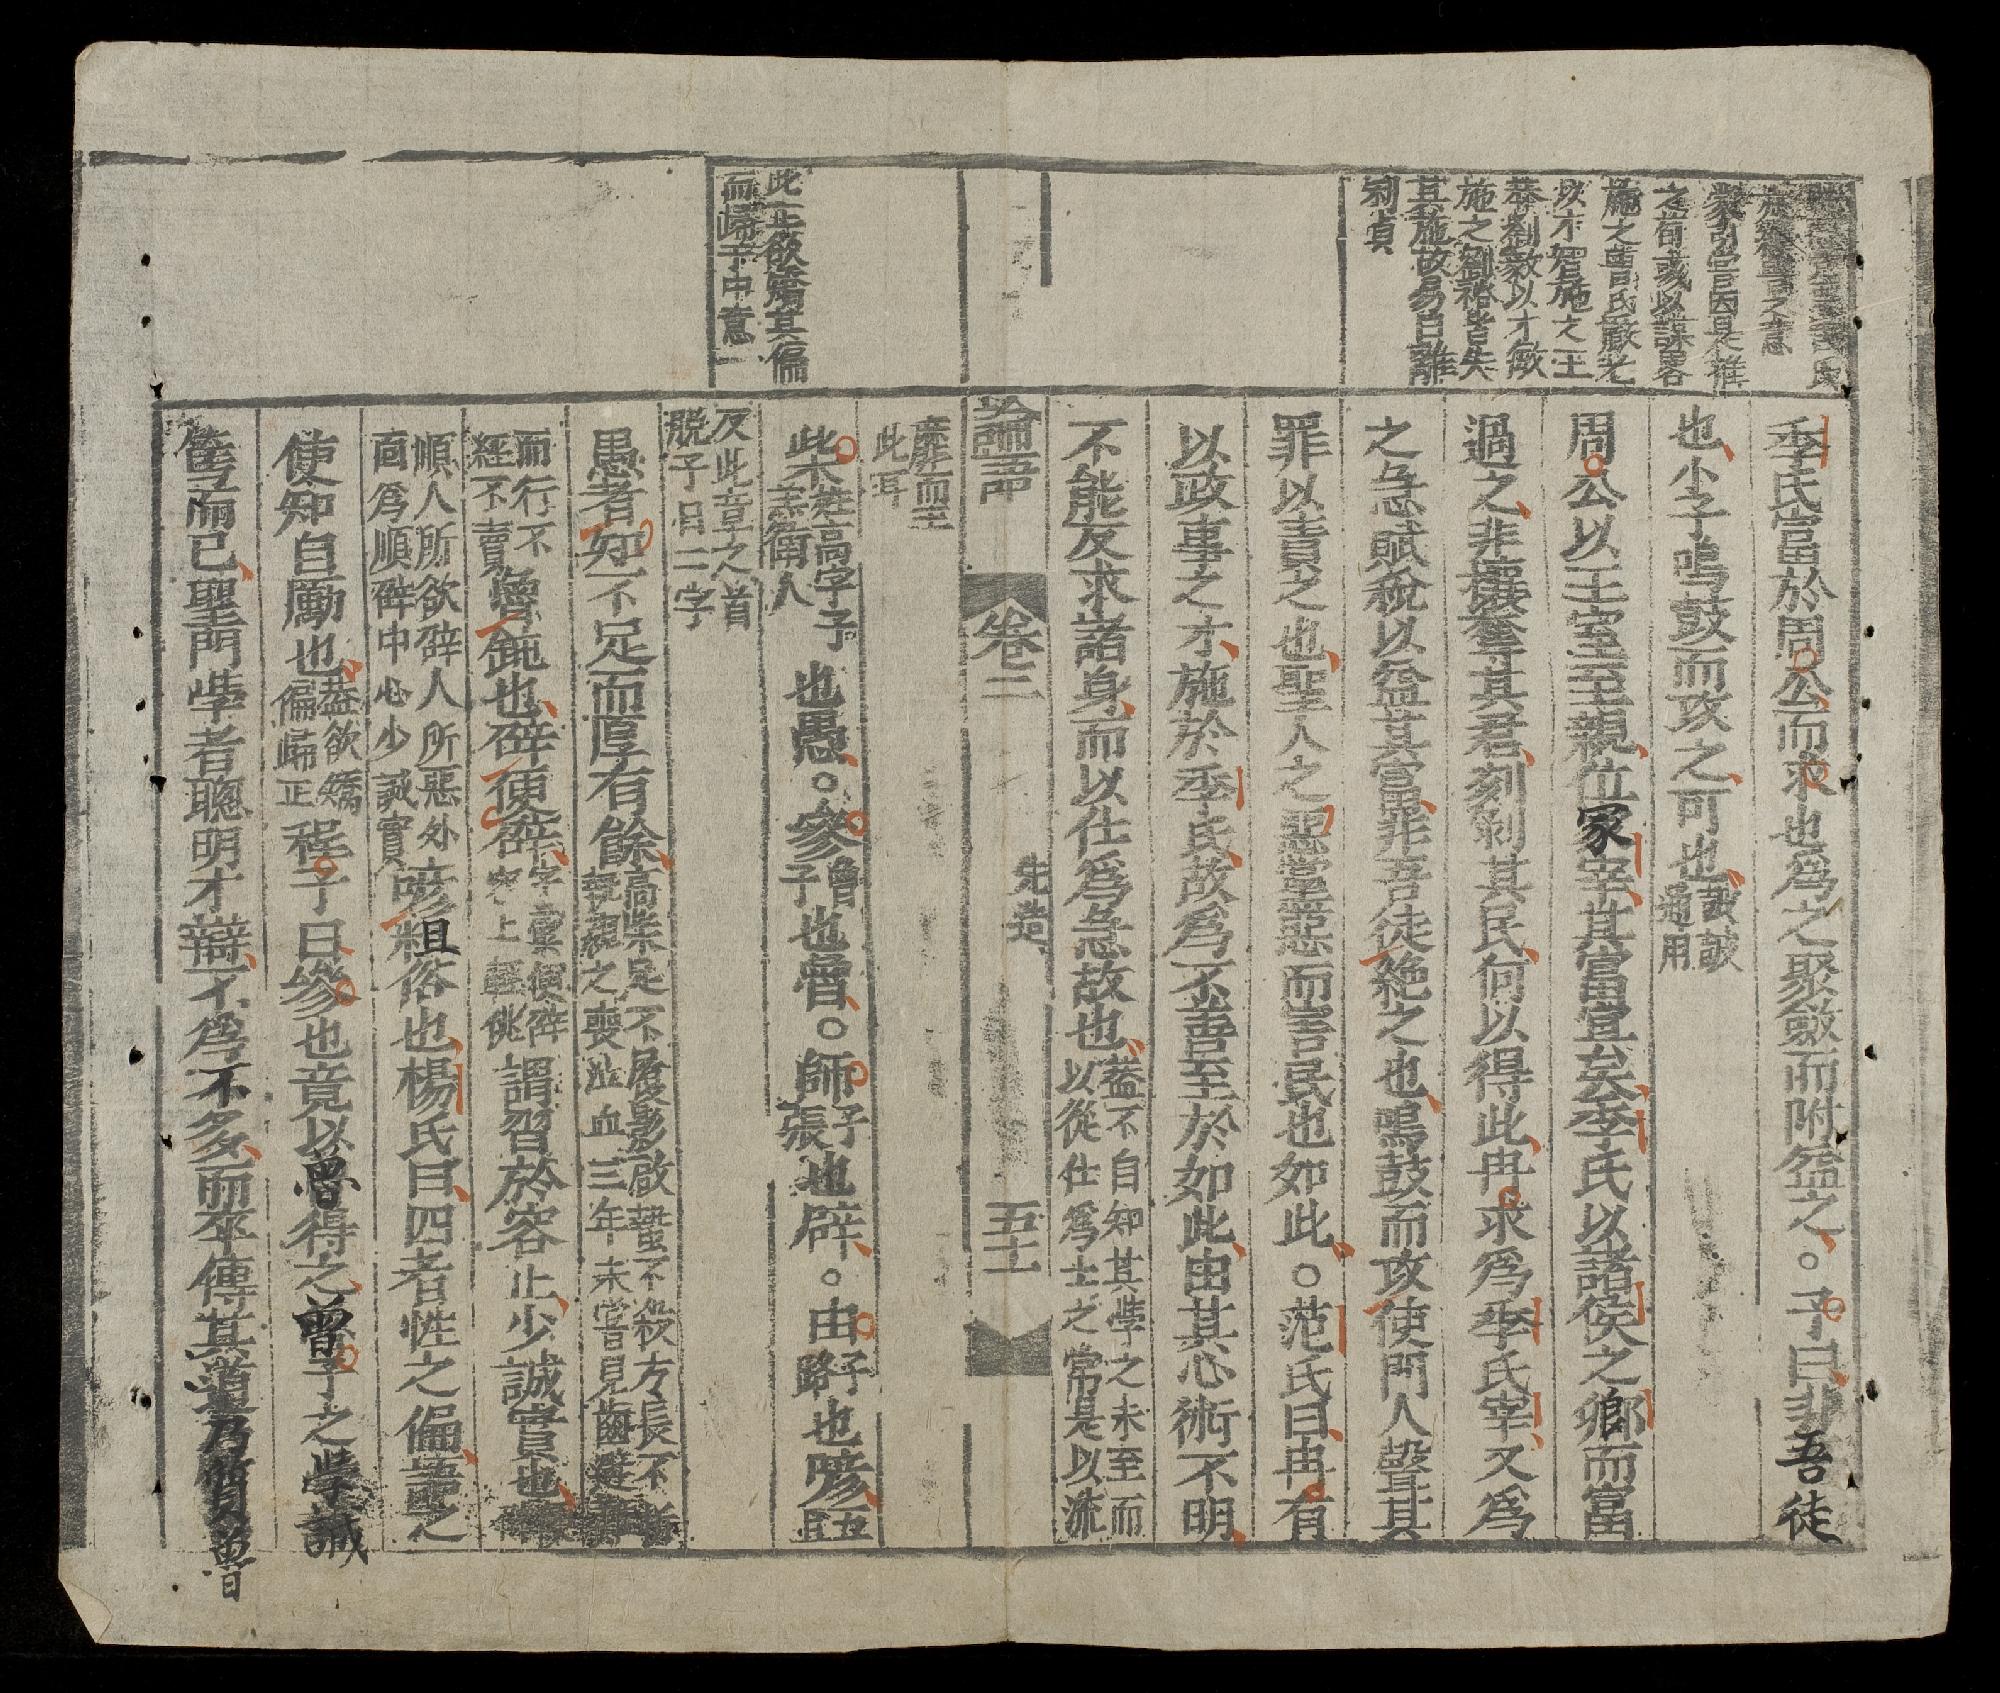 之荀彧以謀畧
施之曹氏嚴尤
以才智施之王
莾劉歆以才敏
施之劉裕皆失
其施故易曰離
剥貞
季氏富於周公而求也爲之聚斂而附益之○子曰非吾徒
也小子鳴鼓而攻之可也
通用
周公以王室至親位冢宰其富宜矣季氏以諸侯之卿而富
過之非攘奪其君刻剥其民何以得此冉求爲季氏宰又爲
之急賦稅以益其富罪非吾徒絶之也鳴鼓而攻使門人聲其
罪以責之也聖人之惡黨惡而害民也如此○范氏曰冉有
以政事之才施於季氏故爲不善至於如此由其心術不明
不能反求諸身而以仕爲急故也葢不自知其學之未至而
以從仕爲士之常是以流
論語 卷二 先進 五十
靡而至
此耳
此正欲矯其偏
而歸于中意
柴姓高字子
羔衛人也愚○參曾
子也魯○師子
張也辟○由子
路也喭
反此章之首
脱子曰二字
愚者知不足而厚有餘高柴足不履影啟蟄不殺方長不折
執親之喪泣血三年未嘗見齒
而行不
經不竇魯鈍也辟便辟字彚便辟
字上輕佻謂習於容止少誠實也
順人所欲辟人所惡外
面爲順辟中心少誠實喭粗俗也楊氏曰四者性之偏語之
使知自勵也葢欲矯
偏歸正程子曰參也竟以魯得之曾子之學誠
篤而已聖門學者聰明才辯不爲不多而卒傳其道乃質魯